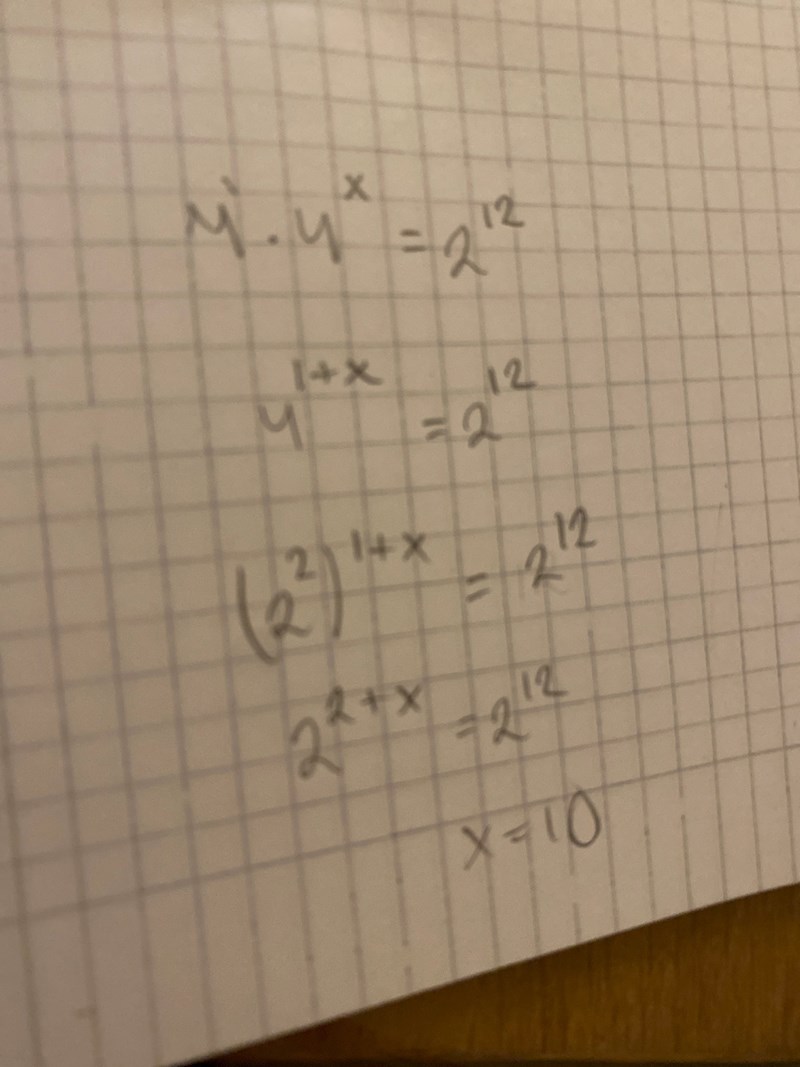 4¹ · 4ˣ = 2¹²
4¹⁺ˣ = 2¹²
(2²)¹⁺ˣ = 2¹²
2²⁺ˣ = 2¹²
x = 10